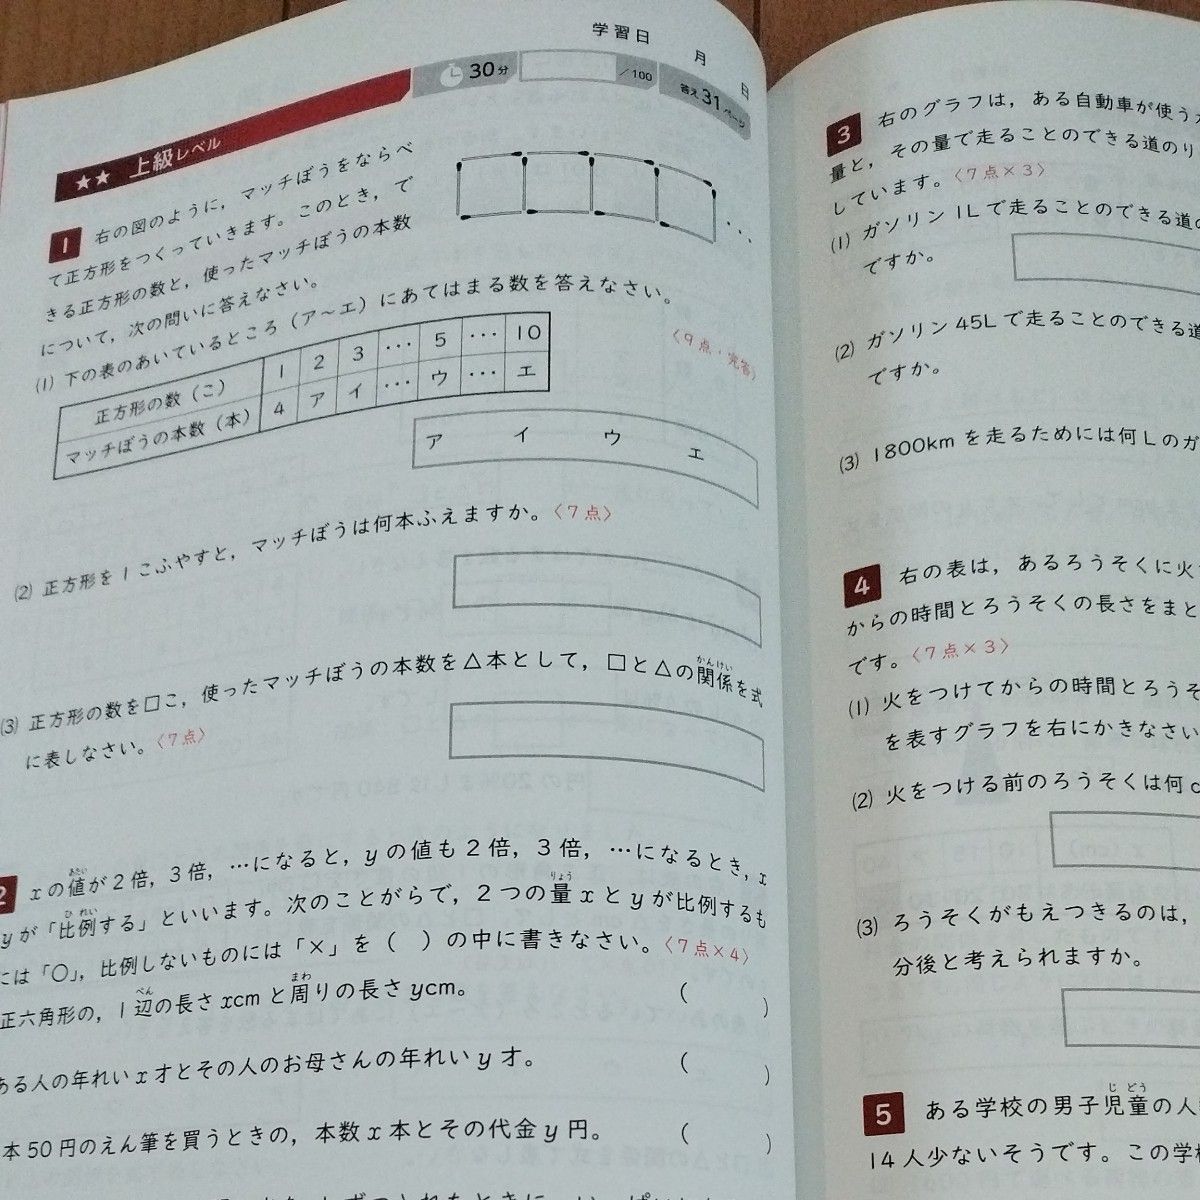 学習日 月 日
30分 /100 答え31ページ
★★ 上級レベル
1 右の図のように，マッチぼうをならべ
て正方形をつくっていきます。このとき，で
きる正方形の数と，使ったマッチぼうの本数
について，次の問いに答えなさい。
(1) 下の表のあいているところ（ア〜エ）にあてはまる数を答えなさい。
〈9点・完答〉
正方形の数（こ） 1 2 3 … 5 … 10
マッチぼうの本数（本） 4 ア イ … ウ … エ
ア イ ウ エ
(2) 正方形を1こふやすと，マッチぼうは何本ふえますか。〈7点〉
(3) 正方形の数を□こ，使ったマッチぼうの本数を△本として，□と△の関係を式
かんけい
に表しなさい。〈7点〉
2 xの値が2倍，3倍，…になると，yの値も2倍，3倍，…になるとき，x
あたい
yが「比例する」といいます。次のことがらで，2つの量xとyが比例するも
ひれい りょう
には「○」，比例しないものには「×」を（ ）の中に書きなさい。〈7点×4〉
正六角形の，1辺の長さxcmと周りの長さycm。 （ ）
べん まわ
ある人の年れいx才とその人のお母さんの年れいy才。 （ ）
本50円のえん筆を買うときの，本数x本とその代金y円。 （ ）
3 右のグラフは，ある自動車が使う
量と，その量で走ることのできる道のり
しています。〈7点×3〉
(1) ガソリン1Lで走ることのできる道の
ですか。
(2) ガソリン45Lで走ることのできる道
ですか。
(3) 1800kmを走るためには何Lのガ
4 右の表は，あるろうそくに火
からの時間とろうそくの長さをまと
です。〈7点×3〉
(1) 火をつけてからの時間とろうそ
を表すグラフを右にかきなさい
(2) 火をつける前のろうそくは何c
(3) ろうそくがもえつきるのは，
分後と考えられますか。
5 ある学校の男子児童の人
じどう
14人少ないそうです。この学校